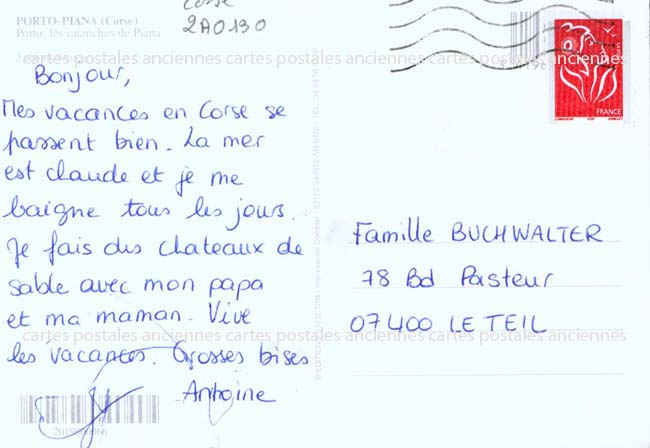 PORTO-PIANA (Corse)
Porto, les calanches de Piana
Corse
2A0130
cartes postales anciennes cartes postales anciennes cartes postales anciennes
Bonjour,
Mes vacances en Corse se
passent bien. La mer
est claude et je me
baigne tous les jours.
Je fais des chateaux de
sable avec mon papa
et ma maman. Vive
les vacances. Grosses bises
Antoine
FRANCE
Famille BUCHWALTER
78 Bd Pasteur
07400 LE TEIL
cartes postales anciennes cartes postales anciennes cartes postales anciennes